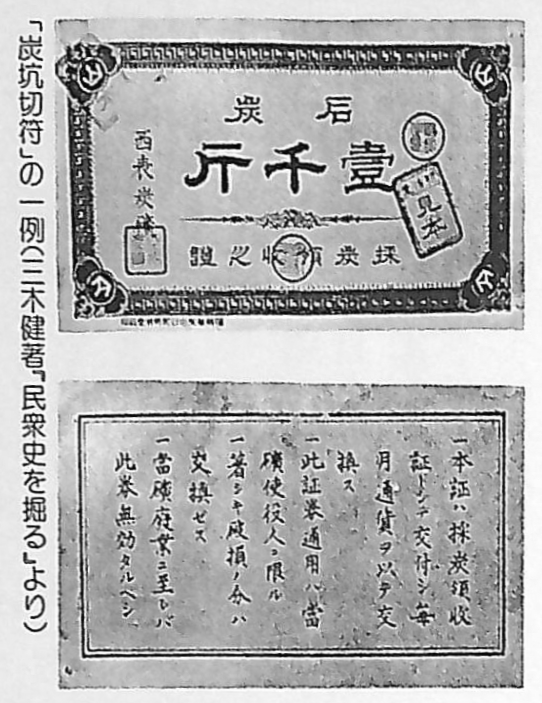 「炭坑切符」の一例(三木健著『民衆史を掘る』より)
石炭
壹千斤
採炭領収之證
西表炭礦
見本
一本証ハ採炭領収
証トシテ交付シ毎
月通貨ヲ以テ交
換ス
一此証券通用ハ當
礦使役人ニ限ル
一著シキ破損ノ分ハ
交換ゼス
一當礦廃業ニ至レバ
此券無効タルヘシ